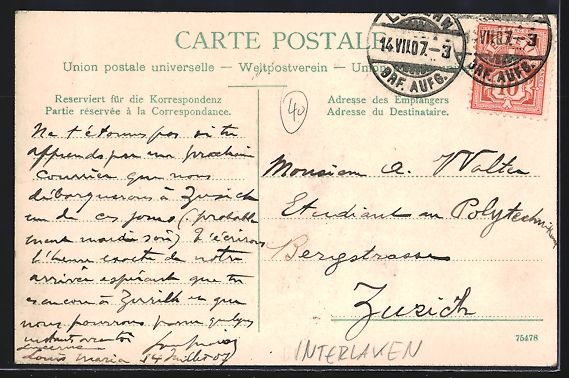 CARTE POSTALE
Union postale universelle — Weltpostverein — Union
14 VII 07.-3
BRF. AUFG.
VII 07.-3
BRF. AUFG.
10
Reserviert für die Korrespondenz
Partie réservée à la Correspondance.
40
Adresse des Empfängers
Adresse du Destinataire.
Ne t'étonnes pas si tu
apprends par un prochain
courrier que nous
débarquerons à Zurich
un de ces jours (probable
ment mardi soir) T'écrirons
l'heure exacte de notre
arrivée espérant que tu
es encore à Zurich et que
nous pourrons passer quelques
instants
Lucerne
Louis Maria 14 Juillet 07
Monsieur A. Walter
Etudiant au Polytechnikum
Bergstrasse
Zurich
75478
INTERLAKEN